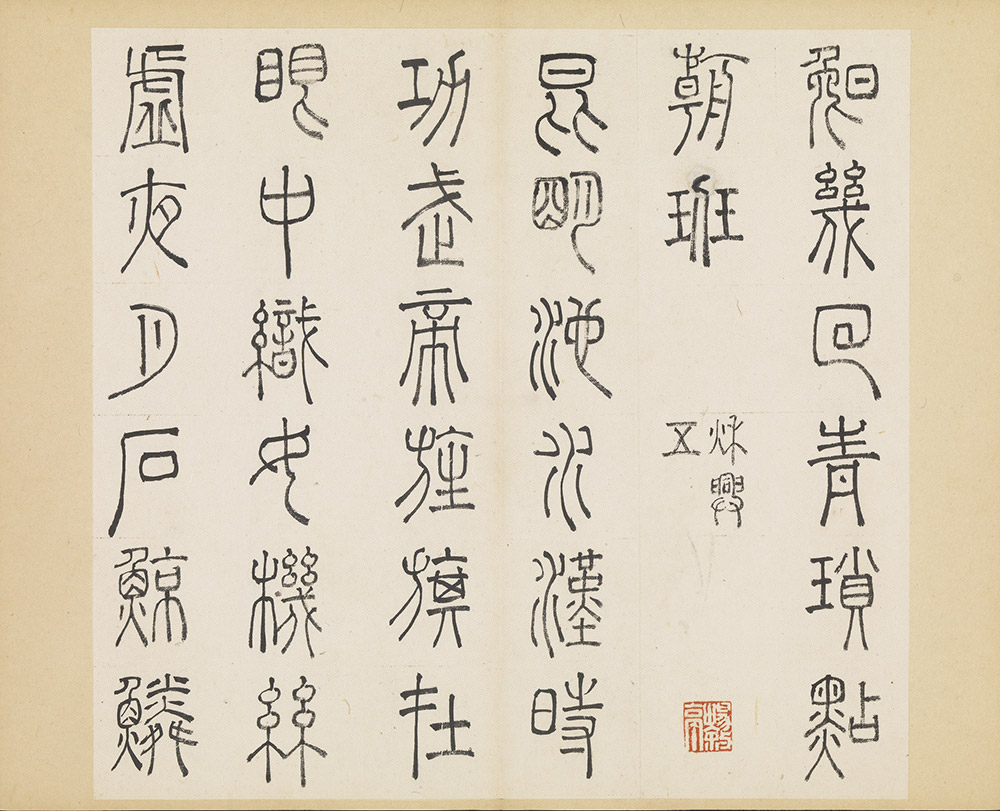 晚幾回青瑣點
朝班
秋興
五
昆明池水漢時
功武帝旌旗在
眼中織女機絲
虛夜月石鯨鱗